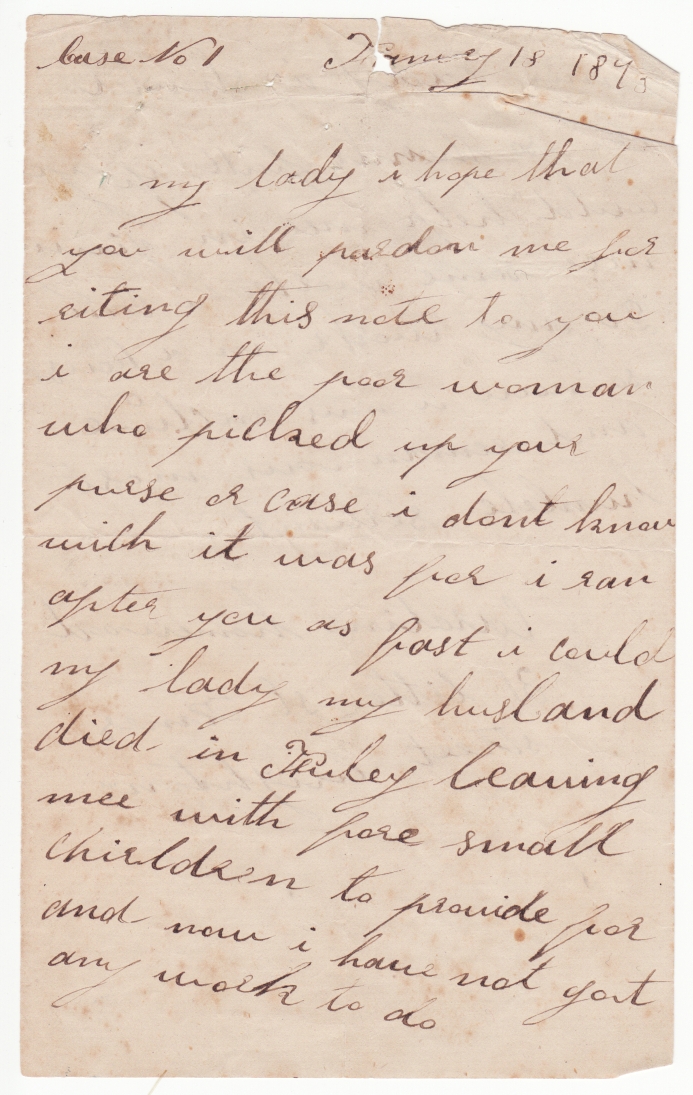 Case No 1 18 1893
my lady i hope that
you will pardon me for
riting this note to you
i are the poor woman
who picked up your
purse or case i dont know
with it was for i ran
after you as fast i could
my lady my husband
died in Juley leaving
mee with fore small
chieldren to provide for
and now i have not got
any work to do